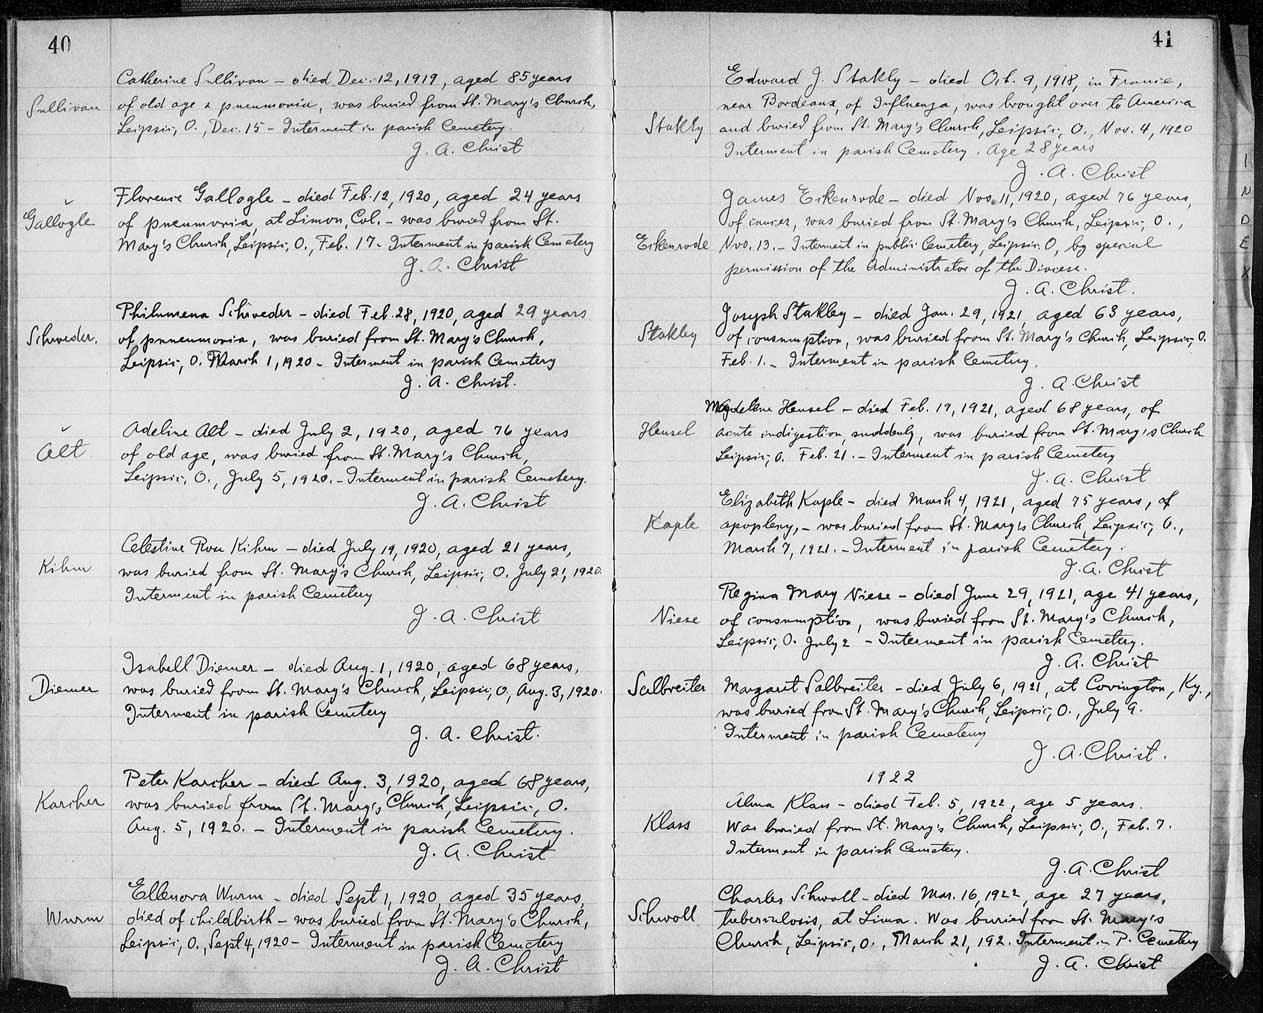 40
Sullivan
Catherine Sullivan – died Dec. 12, 1919, aged 85 years
of old age & pneumonia, was buried from St. Mary's Church,
Leipsic, O., Dec. 15 – Interment in parish Cemetery.
J. A. Christ
Gallogle
Florence Gallogle – died Feb. 12, 1920, aged 24 years
of pneumonia, at Limon, Col. – was buried from St.
Mary's Church, Leipsic, O., Feb. 17 – Interment in parish Cemetery
J. A. Christ
Schroeder.
Philumena Schroeder – died Feb. 28, 1920, aged 29 years
of pnneumonia, was buried from St. Mary's Church,
Leipsic, O. March 1, 1920 – Interment in parish Cemetery
J. A. Christ.
Alt
Adeline Alt – died July 2, 1920, aged 76 years
of old age, was buried from St. Mary's Church,
Leipsic, O., July 5, 1920. – Interment in parish Cemetery.
J. A. Christ
Kihm
Celestine Rose Kihm – died July 19, 1920, aged 21 years,
was buried from St. Mary's Church, Leipsic, O. July 21, 1920.
Interment in parish Cemetery
J. A. Christ
Diemer
Isabell Diemer – died Aug. 1, 1920, aged 68 years,
was buried from St. Mary's Church, Leipsic, O, Aug. 3, 1920.
Interment in parish Cemetery
J. A. Christ.
Karcher
Peter Karcher – died Aug. 3, 1920, aged 68 years,
was buried from St. Mary's Church, Leipsic, O.
Aug. 5, 1920. – Interment in parish Cemetery.
J. A. Christ
Wurm
Ellenora Wurm – died Sept 1, 1920, aged 35 years,
died of childbirth – was buried from St. Mary's Church,
Leipsic, O., Sept 4, 1920 – Interment in parish Cemetery
J. A. Christ
41
Stakly
Edward J. Stakly – died Oct. 9, 1918, in France,
near Bordeaux, of Influenza, was brought over to America
and buried from St. Mary's Church, Leipsic, O., Nov. 4, 1920
Interment in parish Cemetery. Age 28 years
J. A. Christ
Eckenrode
James Eckenrode – died Nov. 11, 1920, aged 76 years,
of cancer, was buried from St. Mary's Church, Leipsic, O.,
Nov. 13. – Interment in public Cemetery, Leipsic O, by special
permission of the Administrator of the Diocese.
J. A. Christ.
Stakley
Joseph Stakley – died Jan. 29, 1921, aged 63 years,
of consumption, was buried from St. Mary's Church, Leipsic, O.
Feb. 1. – Interment in parish Cemetery.
J. A. Christ
Hensel
Magdelene Hensel – died Feb. 19, 1921, aged 68 years, of
acute indigestion, suddenly, was buried from St. Mary's Church
Leipsic, O. Feb. 21. – Interment in parish Cemetery
J. A. Christ
Kaple
Elizabeth Kaple – died March 4, 1921, aged 75 years, of
apoplexy, – was buried from St. Mary's Church, Leipsic, O.,
March 7, 1921. – Interment in parish Cemetery.
J. A. Christ
Niese
Regina Mary Niese – died June 29, 1921, age 41 years,
of consumption, was buried from St. Mary's Church,
Leipsic, O. July 2 – Interment in parish Cemetery.
J. A. Christ
Salbreiter
Margaret Salbreiter – died July 6, 1921, at Covington, Ky.,
was buried from St. Mary's Church, Leipsic, O., July 9.
Interment in parish Cemetery
J. A. Christ.
1922
Klass
Alma Klass – died Feb. 5, 1922, age 5 years.
Was buried from St. Mary's Church, Leipsic, O., Feb. 7.
Interment in parish Cemetery.
J. A. Christ
Schwoll
Charles Schwoll – died Mar. 16, 1922, age 27 years,
tuberculosis, at Lima. Was buried from St. Mary's
Church, Leipsic, O., March 21, 192. Interment in P. Cemetery
J. A. Christ
INDEX